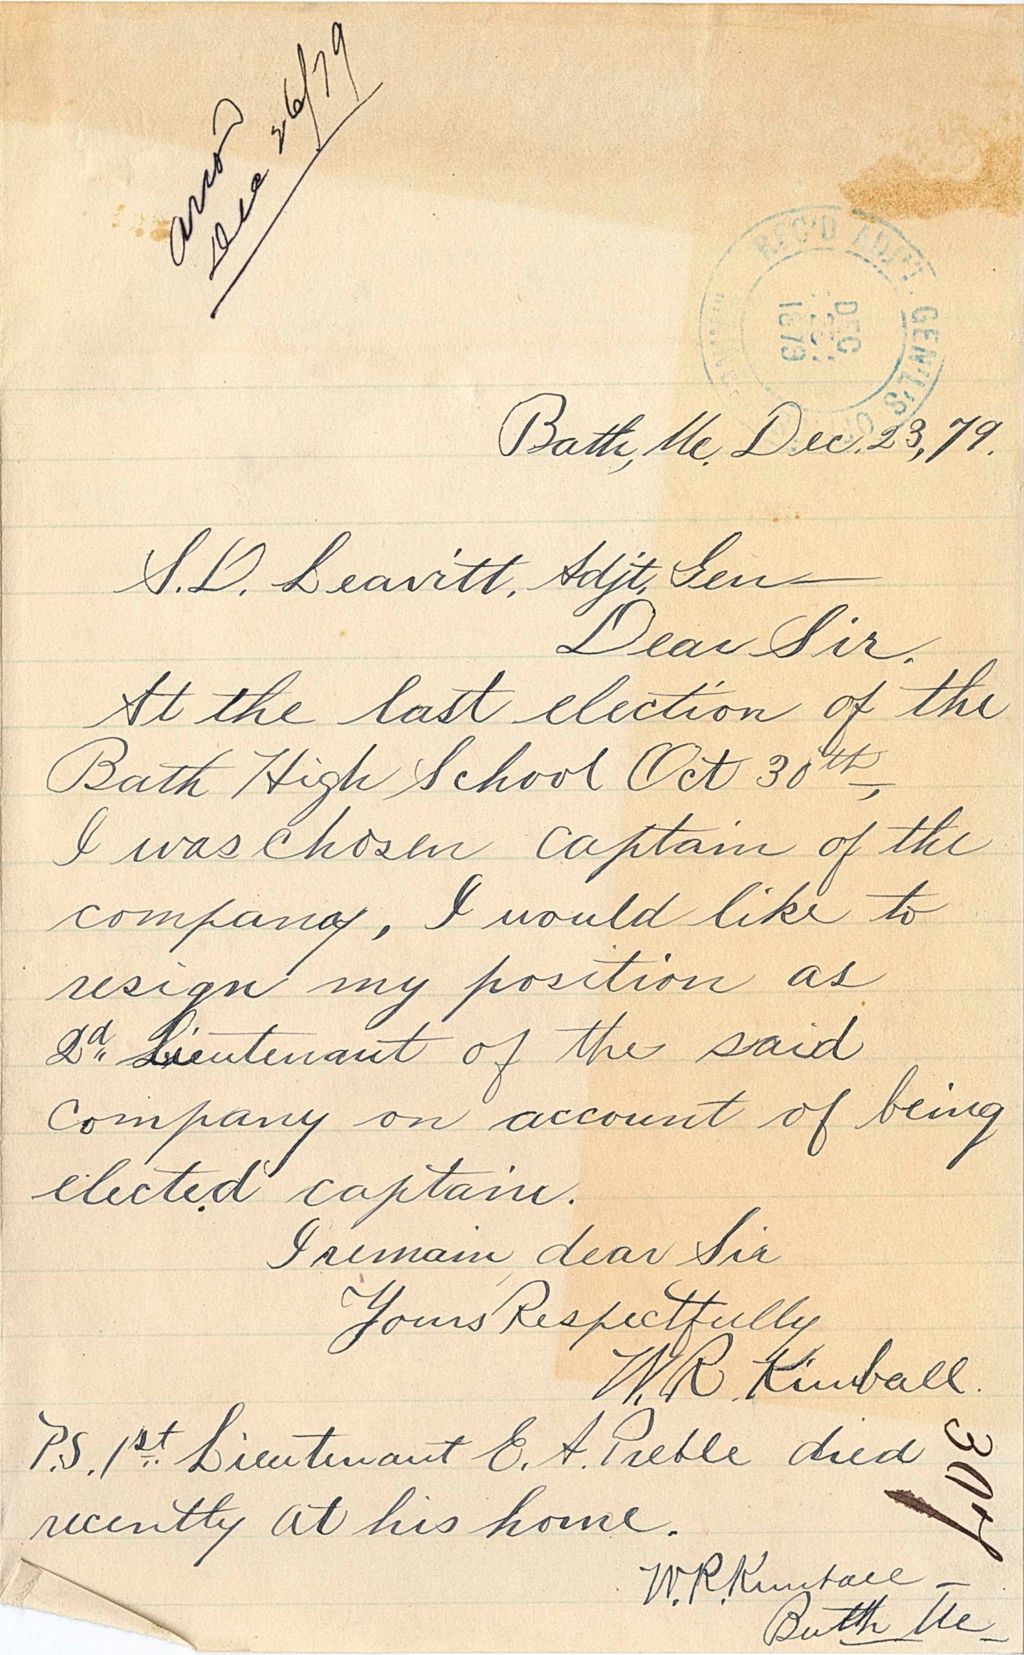 Answd
Dec 26/79
REC'D ADJ'T. GEN'L'S
DEC
1879
Bath, Me. Dec. 23, 79.
S.D. Leavitt, Adjt, Gen—
Dear Sir.
At the last election of the
Bath High School Oct 30th,
I was chosen captain of the
company, I would like to
resign my position as
2d. Lieutenant of the said
company on account of being
elected captain.
I remain, dear Sir
Yours Respectfully
W.R. Kimball.
P.S. 1st. Lieutenant E. A. Preble died
recently at his home.
307
W.R. Kimball —
Bath Me —